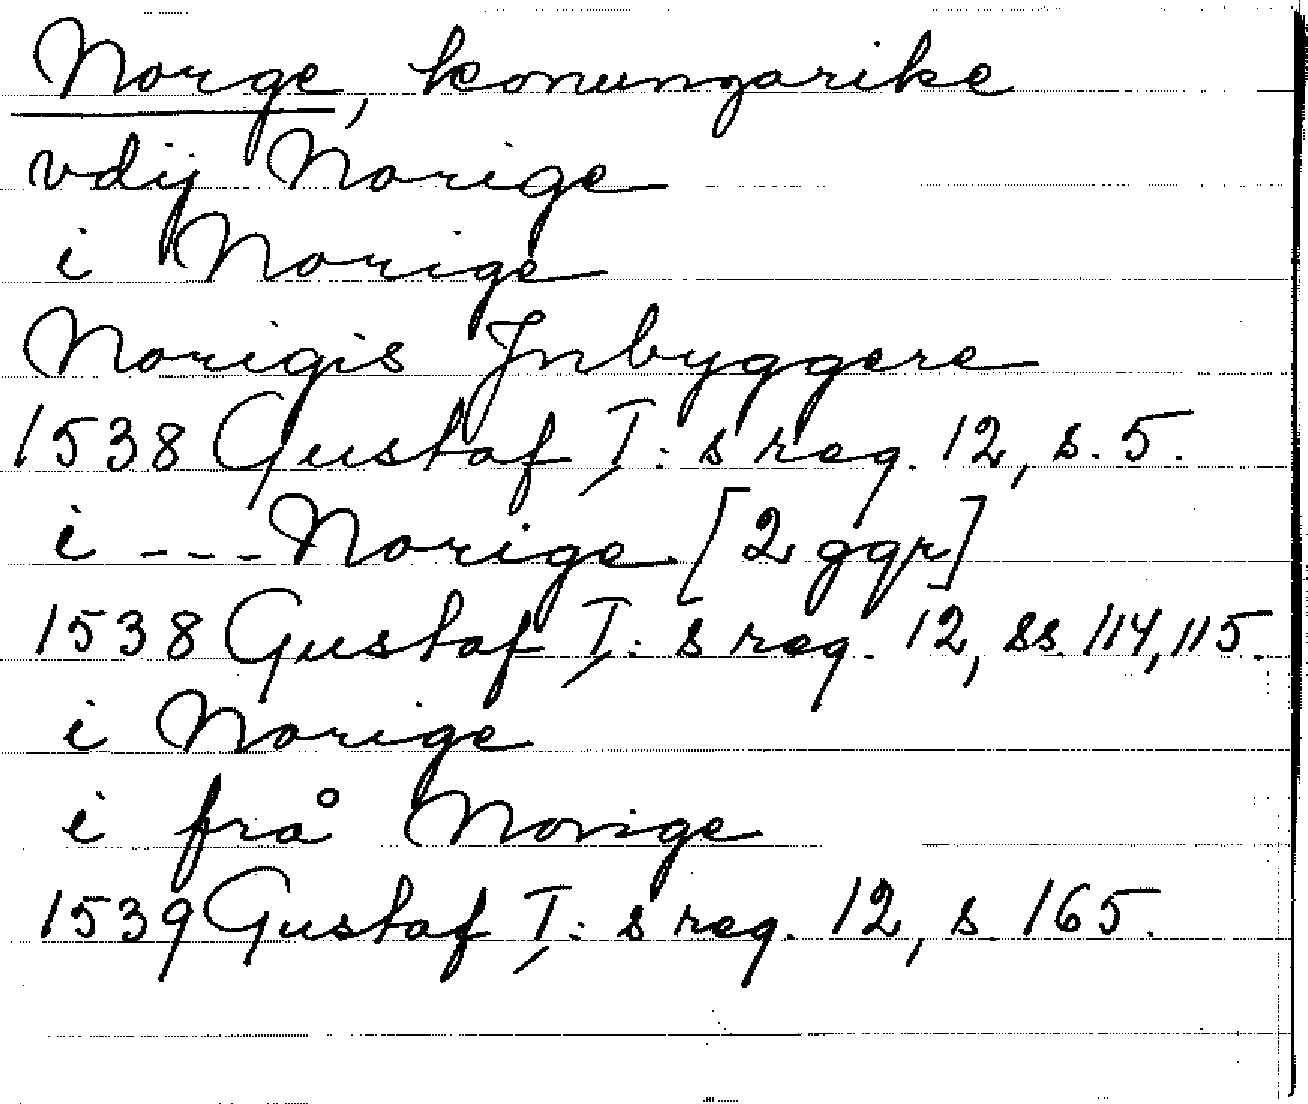 Norge, konungarike
vdij Norige
i Norige
Norigis Jnbyggere
1538 Gustaf I:s reg. 12, s. 5.
i --- Norige [2 ggr]
1538 Gustaf I:s reg. 12, ss. 114, 115.
i Norige
i frå Norige
1539 Gustaf I:s reg. 12, s. 165.